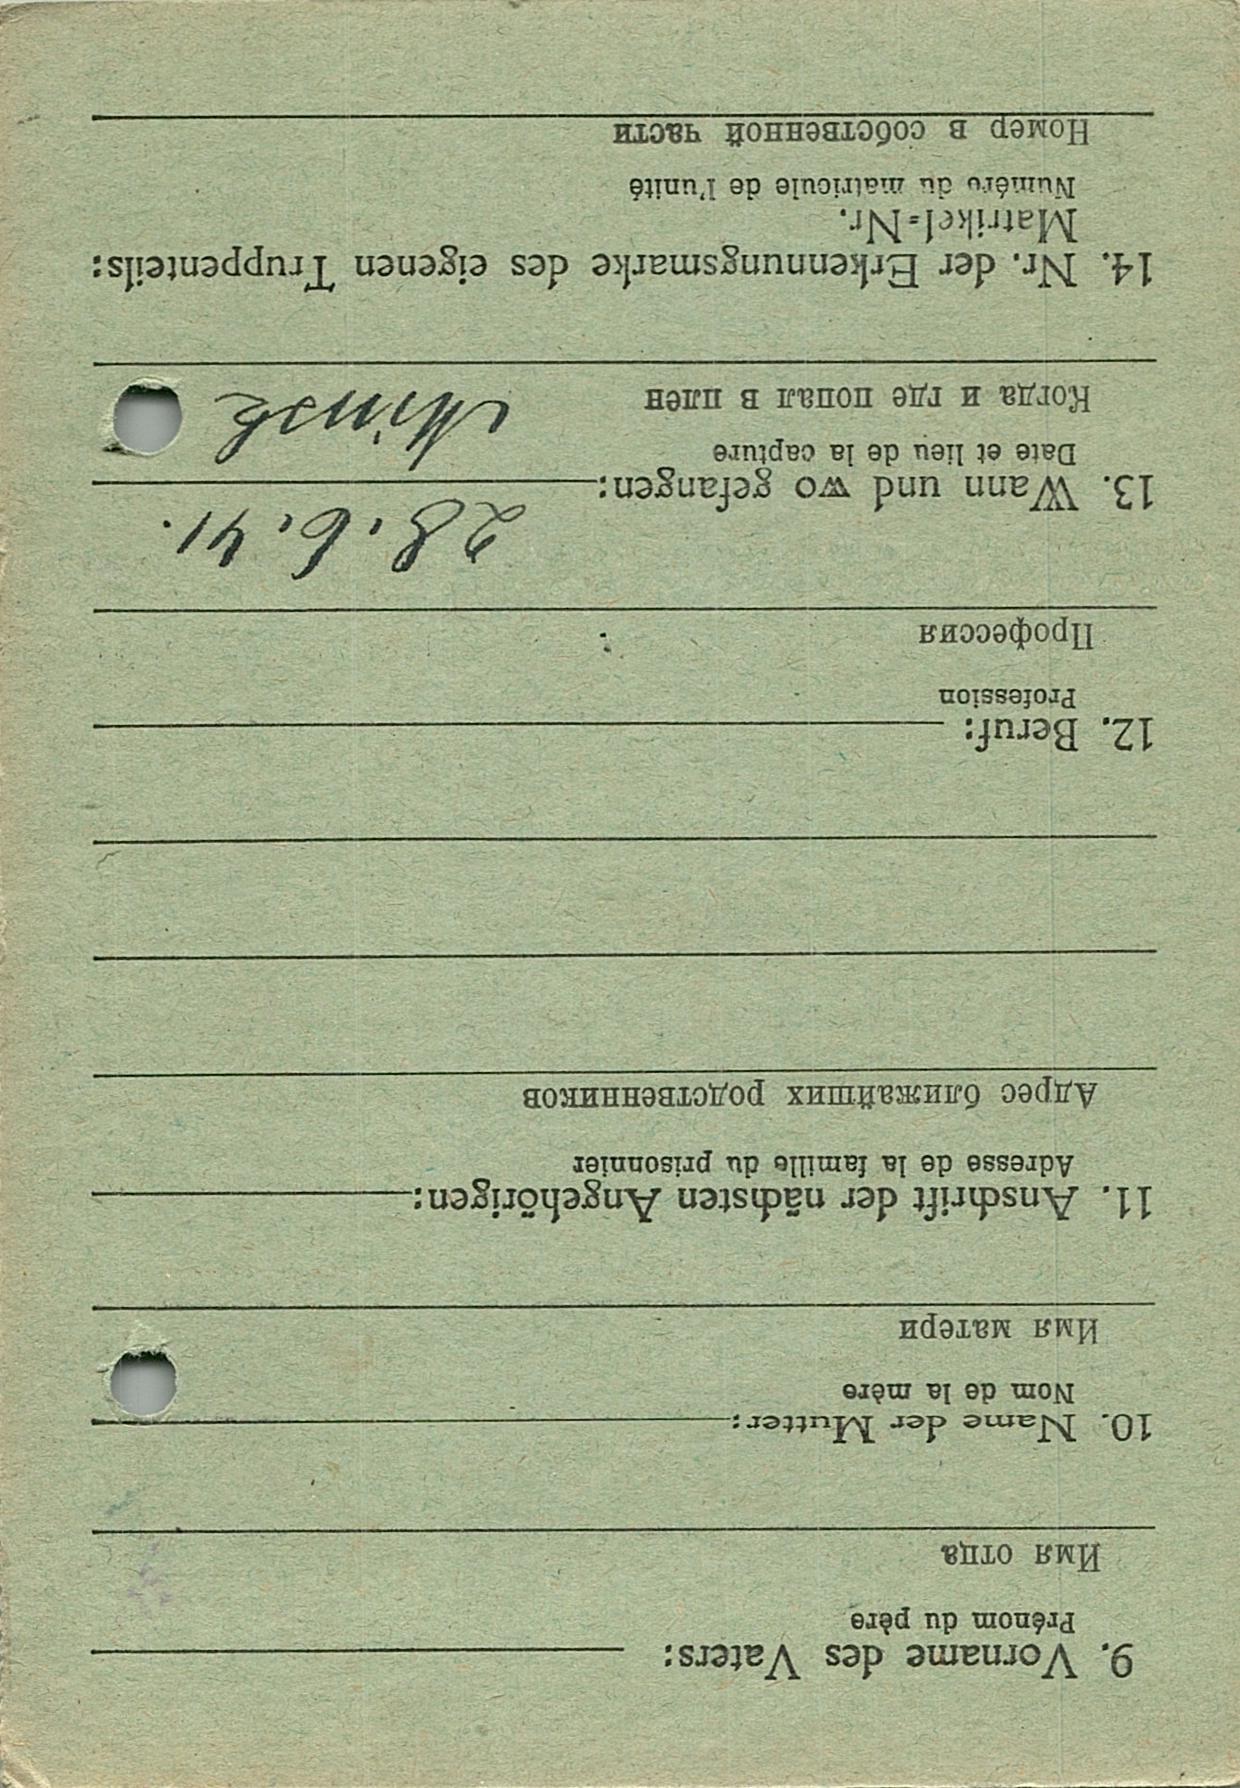 9. Vorname des Vaters:
Prénom du père
Имя отца
10. Name der Mutter:
Nom de la mère
Имя матери
11. Anschrift der nächsten Angehörigen:
Adresse de la famille du prisonnier
Адрес ближайших родственников
12. Beruf:
Profession
Профессия
28. 6. 41.
13. Wann und wo gefangen:
Date et lieu de la capture
Когда и где попал в плен
Minsk
14. Nr. der Erkennungsmarke des eigenen Truppenteils:
Matrikel=Nr.
Numéro du matricule de l'unité
Номер в собственной части